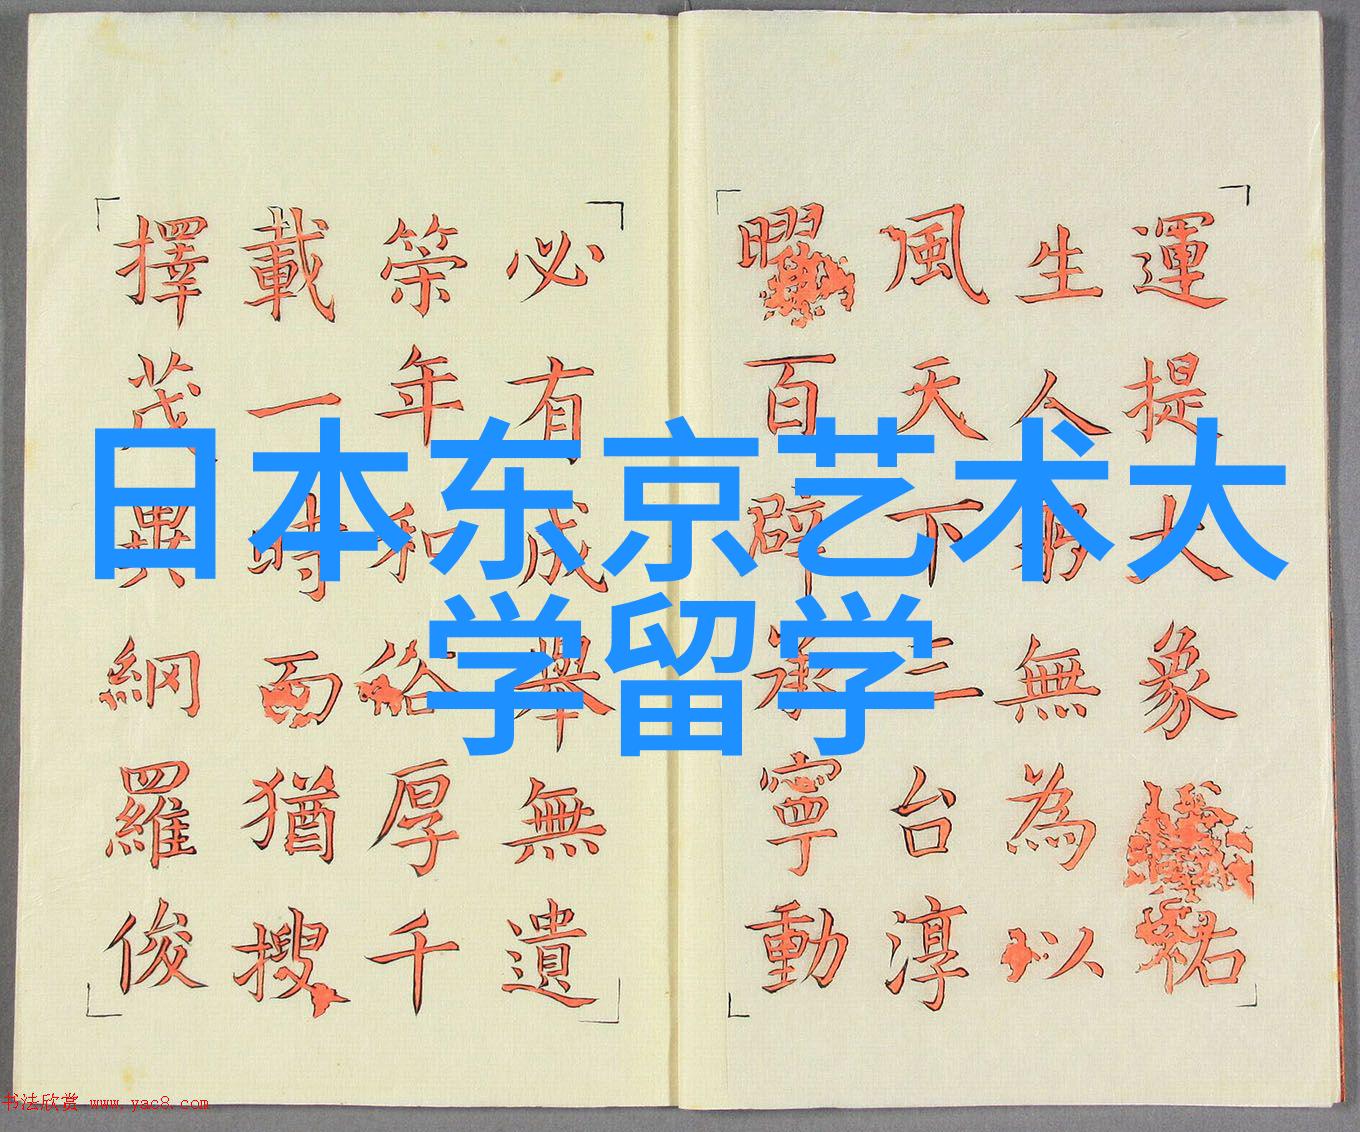 日本东京艺术大
学留学
運提大象 祐
生人 無為以
風天下三台淳
曜百辟承寧動
必有成舉無遺
策年和俗厚千
載一時而猶搜
擇茂異網羅俊
书法欣赏 www.yac8.com